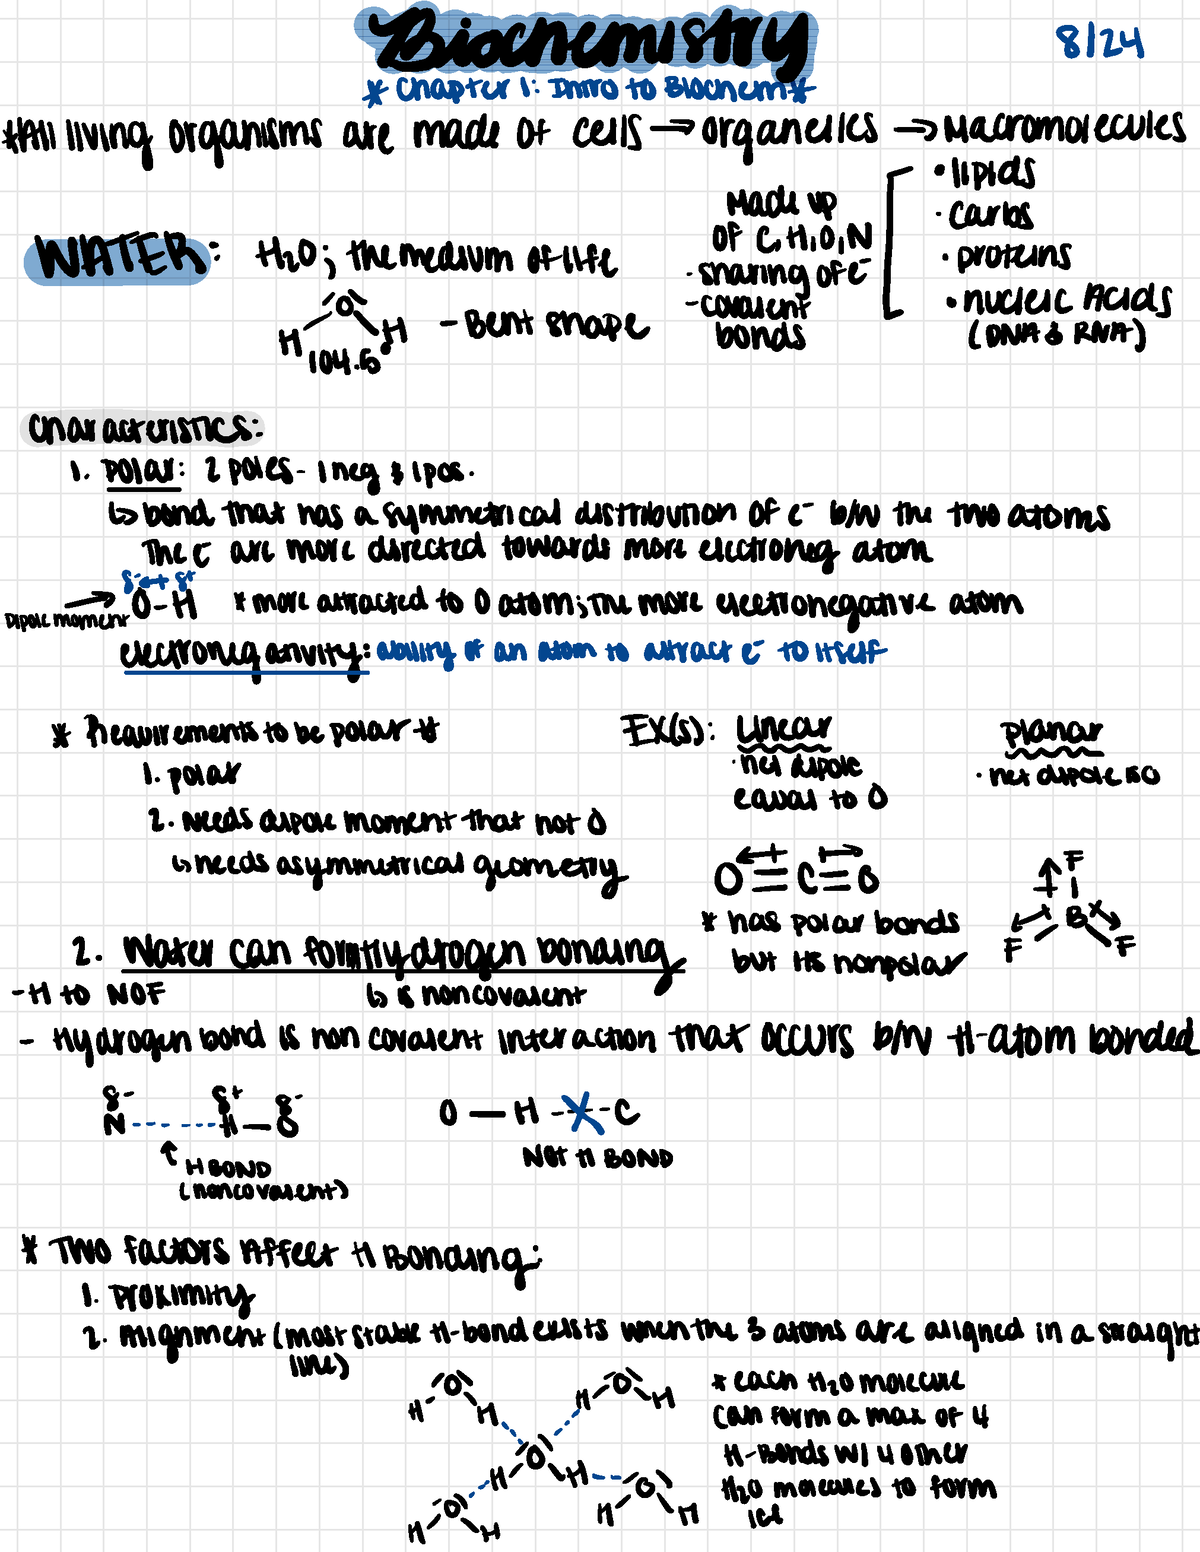 Biochemistry
8/24
* Chapter 1: Intro to Biochem *
* All living organisms are made of cells → organelles → Macromolecules
• lipids
• carbs
• proteins
• nucleic Acids
(DNA & RNA)
Made up
of C,H,O,N
- sharing of e⁻
- covalent
bonds
WATER: H₂O; the medium of life
O
H H
104.5°
- Bent shape
Characteristics:
1. polar: 2 poles - 1 neg & 1 pos.
↳ bond that has a symmetrical distribution of e⁻ b/w the two atoms
The e⁻ are more directed towards more electroneg atom
δ⁻ δ⁺
Dipole moment → O - H * more attracted to O atom; The more electronegative atom
electronegativity: ability of an atom to attract e⁻ to itself
* Requirements to be polar *
1. polar
2. Needs dipole moment that not 0
↳ needs asymmetrical geometry
EX(s): Linear
• net dipole
equal to 0
O = C = O
* has polar bonds
but its nonpolar
Planar
• net dipole is 0
F
B
F F
2. Water can form Hydrogen bonding
- H to NOF ↳ is noncovalent
- Hydrogen bond is non covalent interaction that occurs b/w H-atom bonded
δ⁻ δ⁺ δ⁻
N ------ H — O
↑ H BOND
(noncovalent)
O — H - X - C
NOT H BOND
* Two factors Affect H Bonding:
1. Proximity
2. Alignment (most stable H-bond exists when the 3 atoms are aligned in a straight
line)
O O
H H H H
O
H H
O O
H H H H
* each H₂O molecule
can form a max of 4
H-Bonds w/ 4 other
H₂O molecules to form
ice